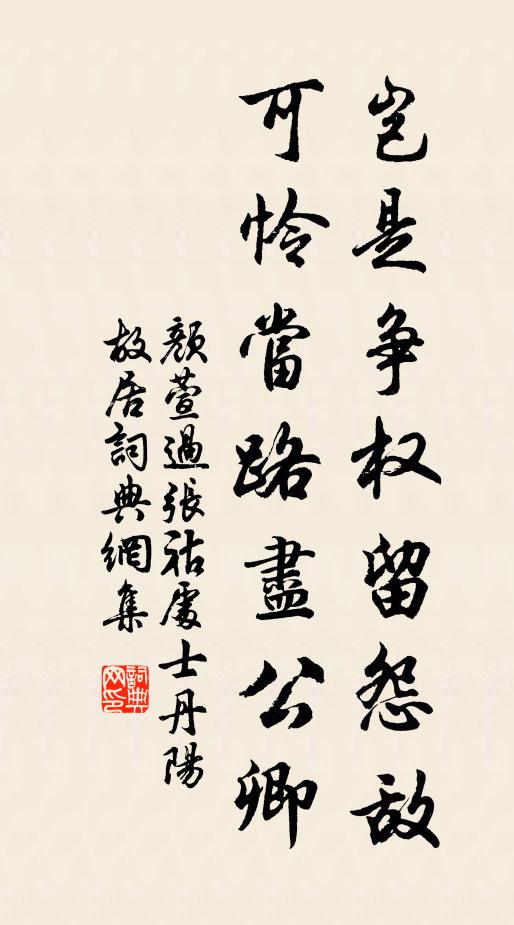 岂是争权留怨敌
可怜當路盡公卿
顔萱過張祜處士丹陽
故居詞典網集
詞典
网印